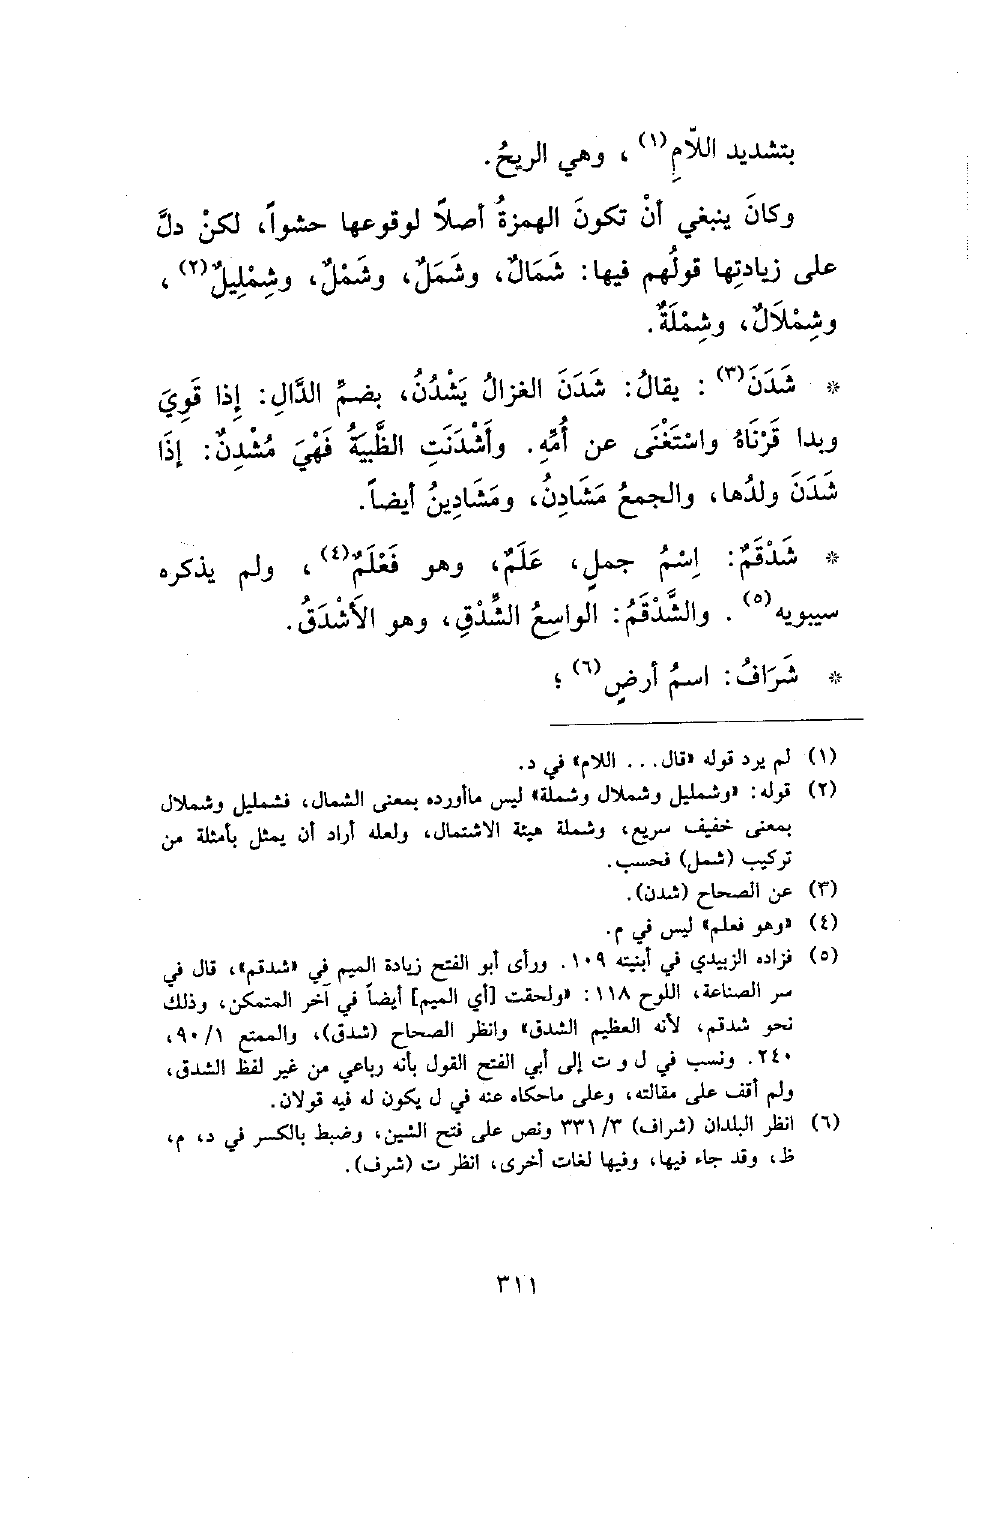 بتشديد اللّامِ(١) ، وهي الريحُ.
وكانَ ينبغي أنْ تكونَ الهمزةُ أصلًا لوقوعها حشواً، لكنْ دلَّ
على زيادتِها قولُهم فيها: شَمَالٌ، وشَمَلٌ، وشَمْلٌ، وشِمْلِيلٌ(٢) ،
وشِمْلَالٌ، وشِمْلَةٌ.
* شَدَنَ(٣) : يقالُ: شَدَنَ الغزالُ يَشْدُنُ، بضمِّ الدَّالِ: إِذا قَوِيَ
وبدا قَرْنَاهُ واسْتَغْنَى عن أُمِّهِ. وأَشْدَنَتِ الظَّبيَةُ فَهْيَ مُشْدِنٌ: إذَا
شَدَنَ ولدُها، والجمعُ مَشَادِنُ، ومَشَادِينُ أيضاً.
* شَدْقَمٌ: اِسْمُ جملٍ، عَلَمٌ، وهو فَعْلَمٌ(٤) ، ولم يذكره
سيبويه(٥) . والشَّدْقَمُ: الواسِعُ الشِّدْقِ، وهو الأَشْدَقُ.
* شَرَافُ: اسمُ أرضٍ(٦) ؛
(١) لم يرد قوله «قال... اللام» في د.
(٢) قوله: «وشمليل وشملال وشملة» ليس ماأورده بمعنى الشمال، فشمليل وشملال
بمعنى خفيف سريع، وشملة هيئة الاشتمال، ولعله أراد أن يمثل بأمثلة من
تركيب (شمل) فحسب.
(٣) عن الصحاح (شدن).
(٤) «وهو فعلم» ليس في م.
(٥) فزاده الزبيدي في أبنيته ١٠٩. ورأى أبو الفتح زيادة الميم في «شدقم»، قال في
سر الصناعة، اللوح ١١٨: «ولحقت [أي الميم] أيضاً في آخر المتمكن، وذلك
نحو شدقم، لأنه العظيم الشدق» وانظر الصحاح (شدق)، والممتع ٩٠/١،
٢٤٠. ونسب في ل و ت إلى أبي الفتح القول بأنه رباعي من غير لفظ الشدق،
ولم أقف على مقالته، وعلى ماحكاه عنه في ل يكون له فيه قولان.
(٦) انظر البلدان (شراف) ٣٣١/٣ ونص على فتح الشين، وضبط بالكسر في د، م،
ظ، وقد جاء فيها، وفيها لغات أخرى، انظر ت (شرف).
٣١١